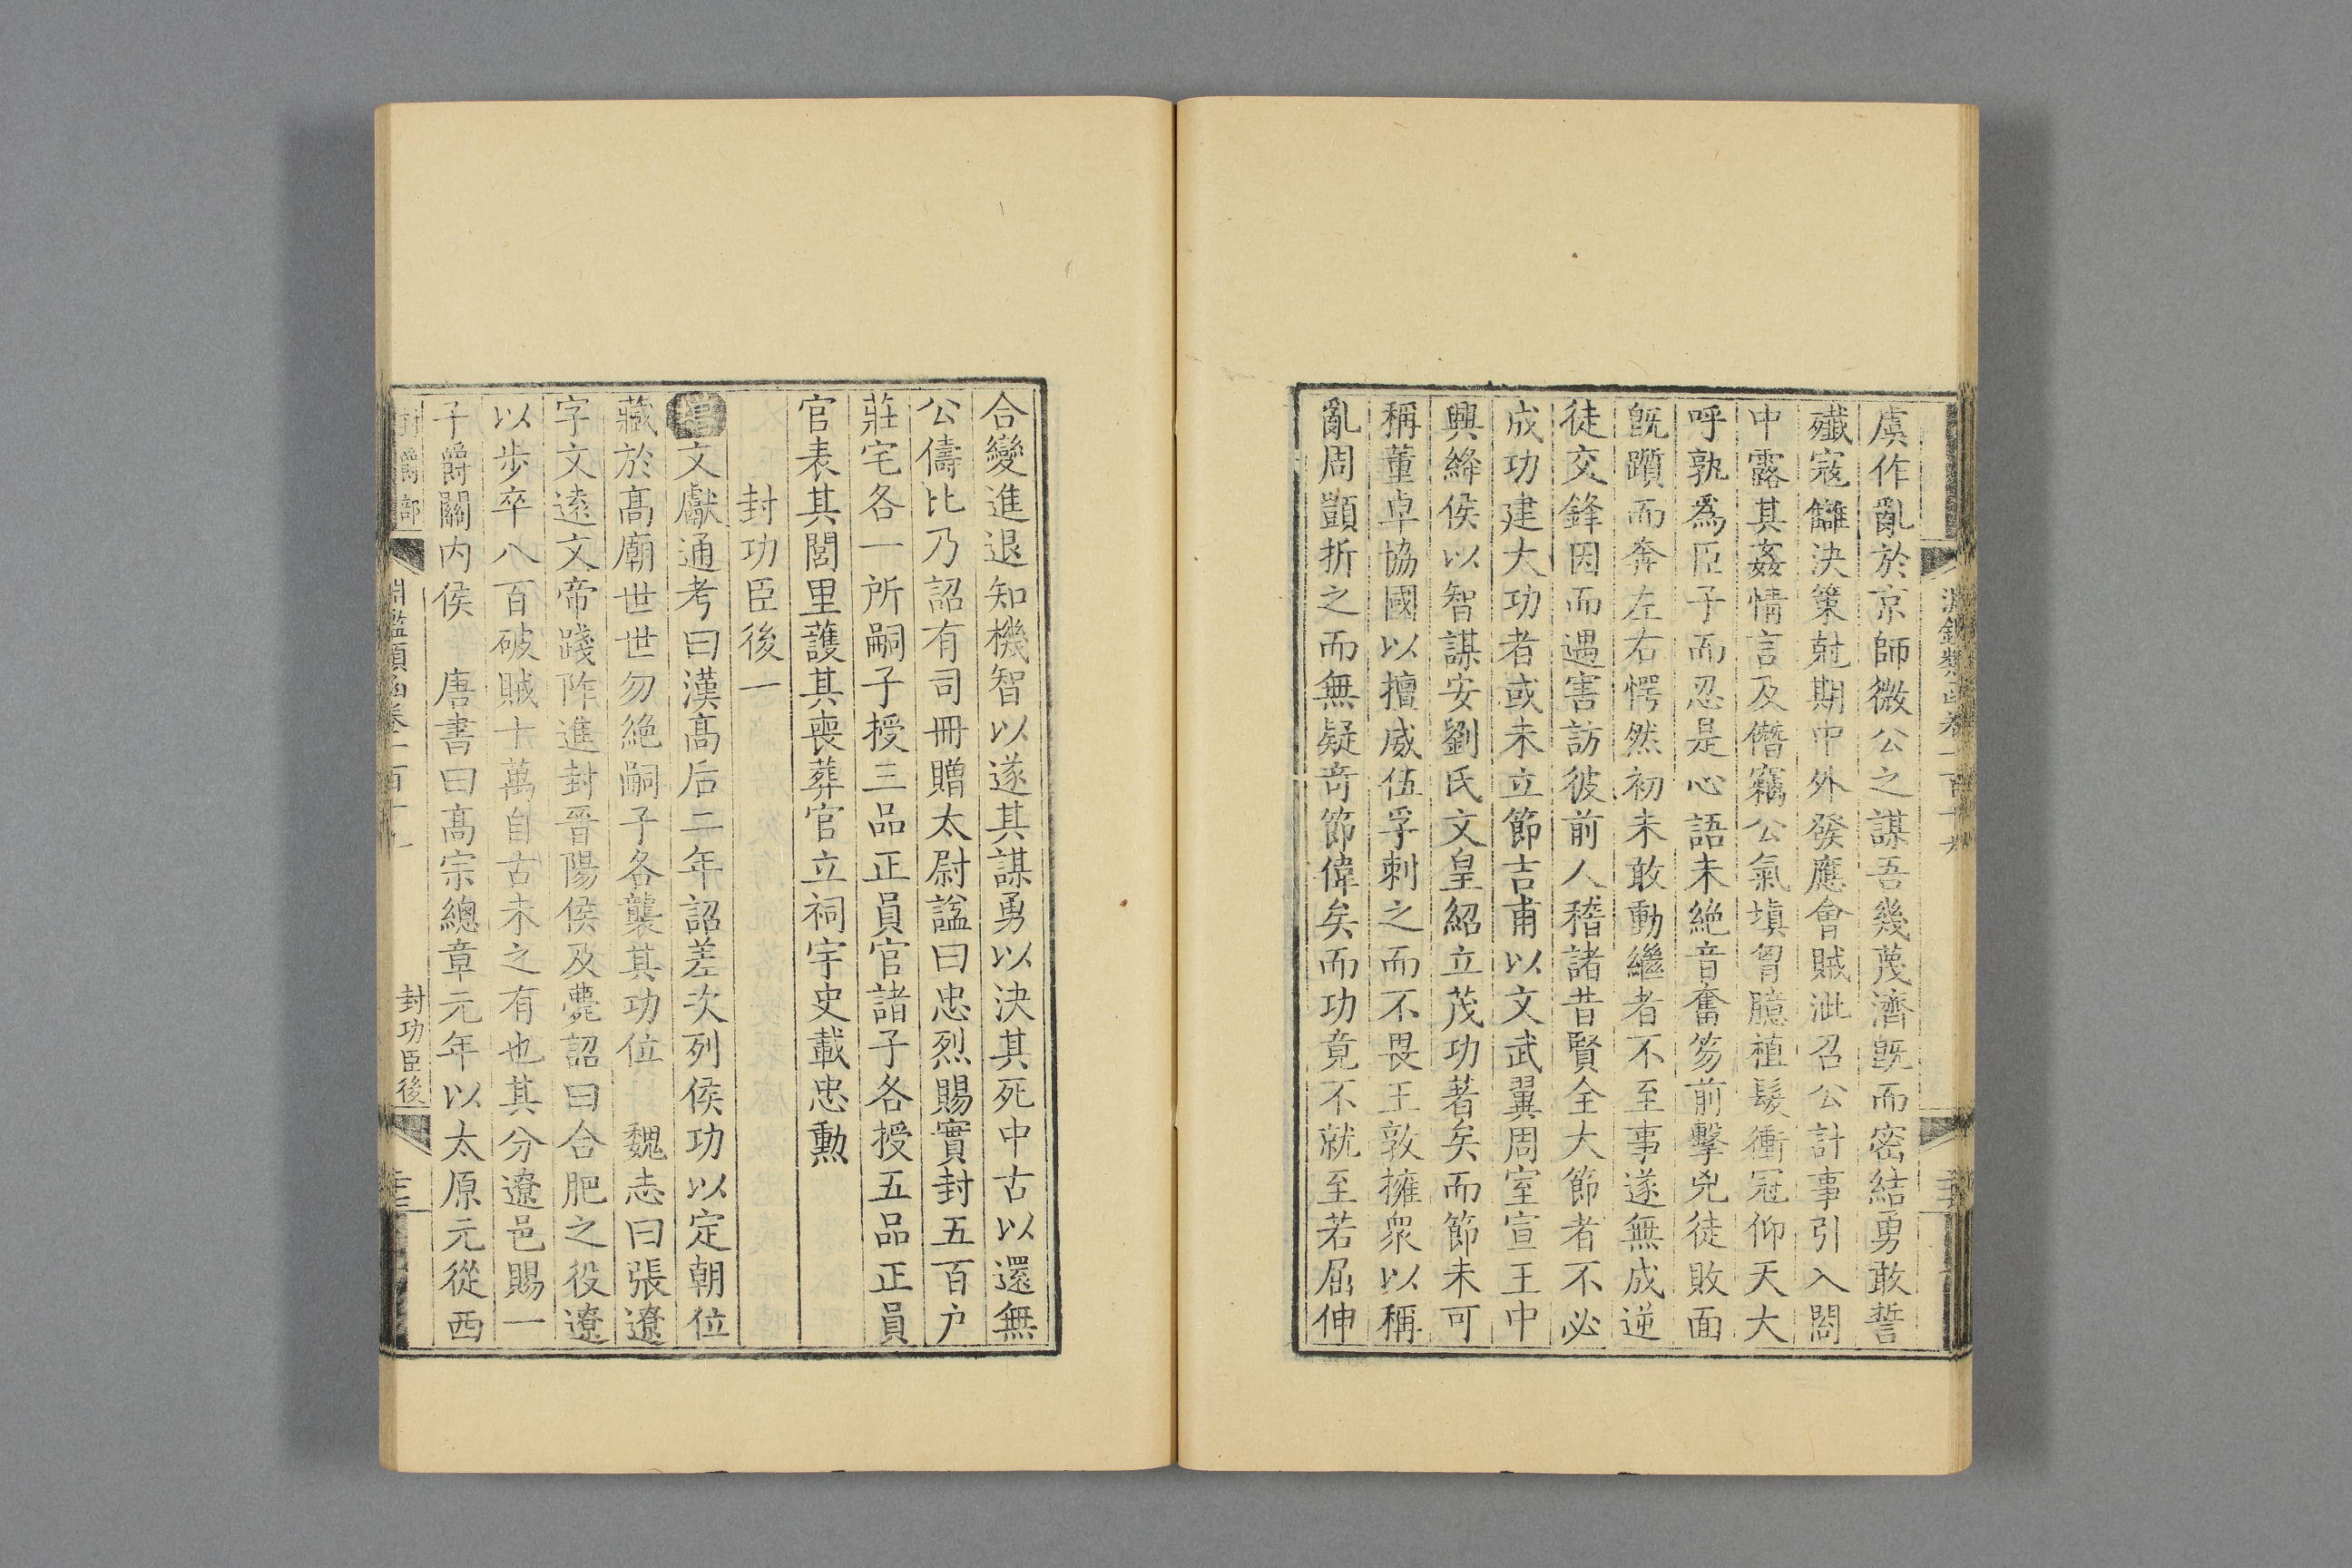 虞作亂於京師微公之謀吾幾蔑濟旣而密結勇敢誓
殲寇讎決策尅期中外發應會賊泚召公計事引入閤
中露其姦情言及僭竊公氣塡胷臆植髮衝冠仰天大
呼孰爲臣子而忍是心語未絶音奮笏前擊兇徒敗面
旣躓而奔左右愕然初未敢動繼者不至事遂無成逆
徒交鋒因而遇害訪彼前人稽諸昔賢全大節者不必
成功建大功者或未立節吉甫以文武翼周室宣王中
興絳侯以智謀安劉氏文皇紹立茂功著矣而節未可
稱董卓協國以擅威伍孚刺之而不畏王敦擁衆以稱
亂周顗折之而無疑奇節偉矣而功竟不就至若屈伸
合變進退知機智以遂其謀勇以決其死中古以還無
公儔比乃詔有司冊贈太尉諡曰忠烈賜實封五百户
莊宅各一所嗣子授三品正員官諸子各授五品正員
官表其閭里護其喪葬官立祠宇史載忠勲
封功臣後一
增文獻通考曰漢髙后二年詔差次列侯功以定朝位
藏於髙廟世世勿絶嗣子各襲其功位　魏志曰張遼
字文遠文帝踐阼進封晉陽侯及薨詔曰合肥之役遼
以步卒八百破賊十萬自古未之有也其分遼邑賜一
子爵關内侯　唐書曰髙宗總章元年以太原元從西
封爵部
淵鑑類函卷一百十
封功臣後